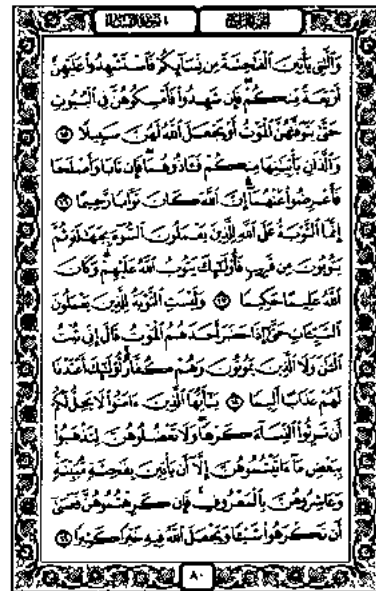 الجزء الرابع
سورة النساء ٤
وَالَّتِي يَأْتِينَ الْفَاحِشَةَ مِن نِّسَائِكُمْ فَاسْتَشْهِدُوا عَلَيْهِنَّ
أَرْبَعَةً مِّنكُمْ فَإِن شَهِدُوا فَأَمْسِكُوهُنَّ فِي الْبُيُوتِ
حَتَّى يَتَوَفَّاهُنَّ الْمَوْتُ أَوْ يَجْعَلَ اللَّهُ لَهُنَّ سَبِيلًا ١٥
وَالَّذَانِ يَأْتِيَانِهَا مِنكُمْ فَآذُوهُمَا فَإِن تَابَا وَأَصْلَحَا
فَأَعْرِضُوا عَنْهُمَا إِنَّ اللَّهَ كَانَ تَوَّابًا رَّحِيمًا ١٦
إِنَّمَا التَّوْبَةُ عَلَى اللَّهِ لِلَّذِينَ يَعْمَلُونَ السُّوءَ بِجَهَالَةٍ ثُمَّ
يَتُوبُونَ مِن قَرِيبٍ فَأُولَئِكَ يَتُوبُ اللَّهُ عَلَيْهِمْ وَكَانَ
اللَّهُ عَلِيمًا حَكِيمًا ١٧ وَلَيْسَتِ التَّوْبَةُ لِلَّذِينَ يَعْمَلُونَ
السَّيِّئَاتِ حَتَّى إِذَا حَضَرَ أَحَدَهُمُ الْمَوْتُ قَالَ إِنِّي تُبْتُ
الْآنَ وَلَا الَّذِينَ يَمُوتُونَ وَهُمْ كُفَّارٌ أُولَئِكَ أَعْتَدْنَا
لَهُمْ عَذَابًا أَلِيمًا ١٨ يَا أَيُّهَا الَّذِينَ ءَامَنُوا لَا يَحِلُّ لَكُمْ
أَن تَرِثُوا النِّسَاءَ كَرْهًا وَلَا تَعْضُلُوهُنَّ لِتَذْهَبُوا
بِبَعْضِ مَا ءَاتَيْتُمُوهُنَّ إِلَّا أَن يَأْتِينَ بِفَاحِشَةٍ مُّبَيِّنَةٍ
وَعَاشِرُوهُنَّ بِالْمَعْرُوفِ فَإِن كَرِهْتُمُوهُنَّ فَعَسَى
أَن تَكْرَهُوا شَيْئًا وَيَجْعَلَ اللَّهُ فِيهِ خَيْرًا كَثِيرًا ١٩
٨٠